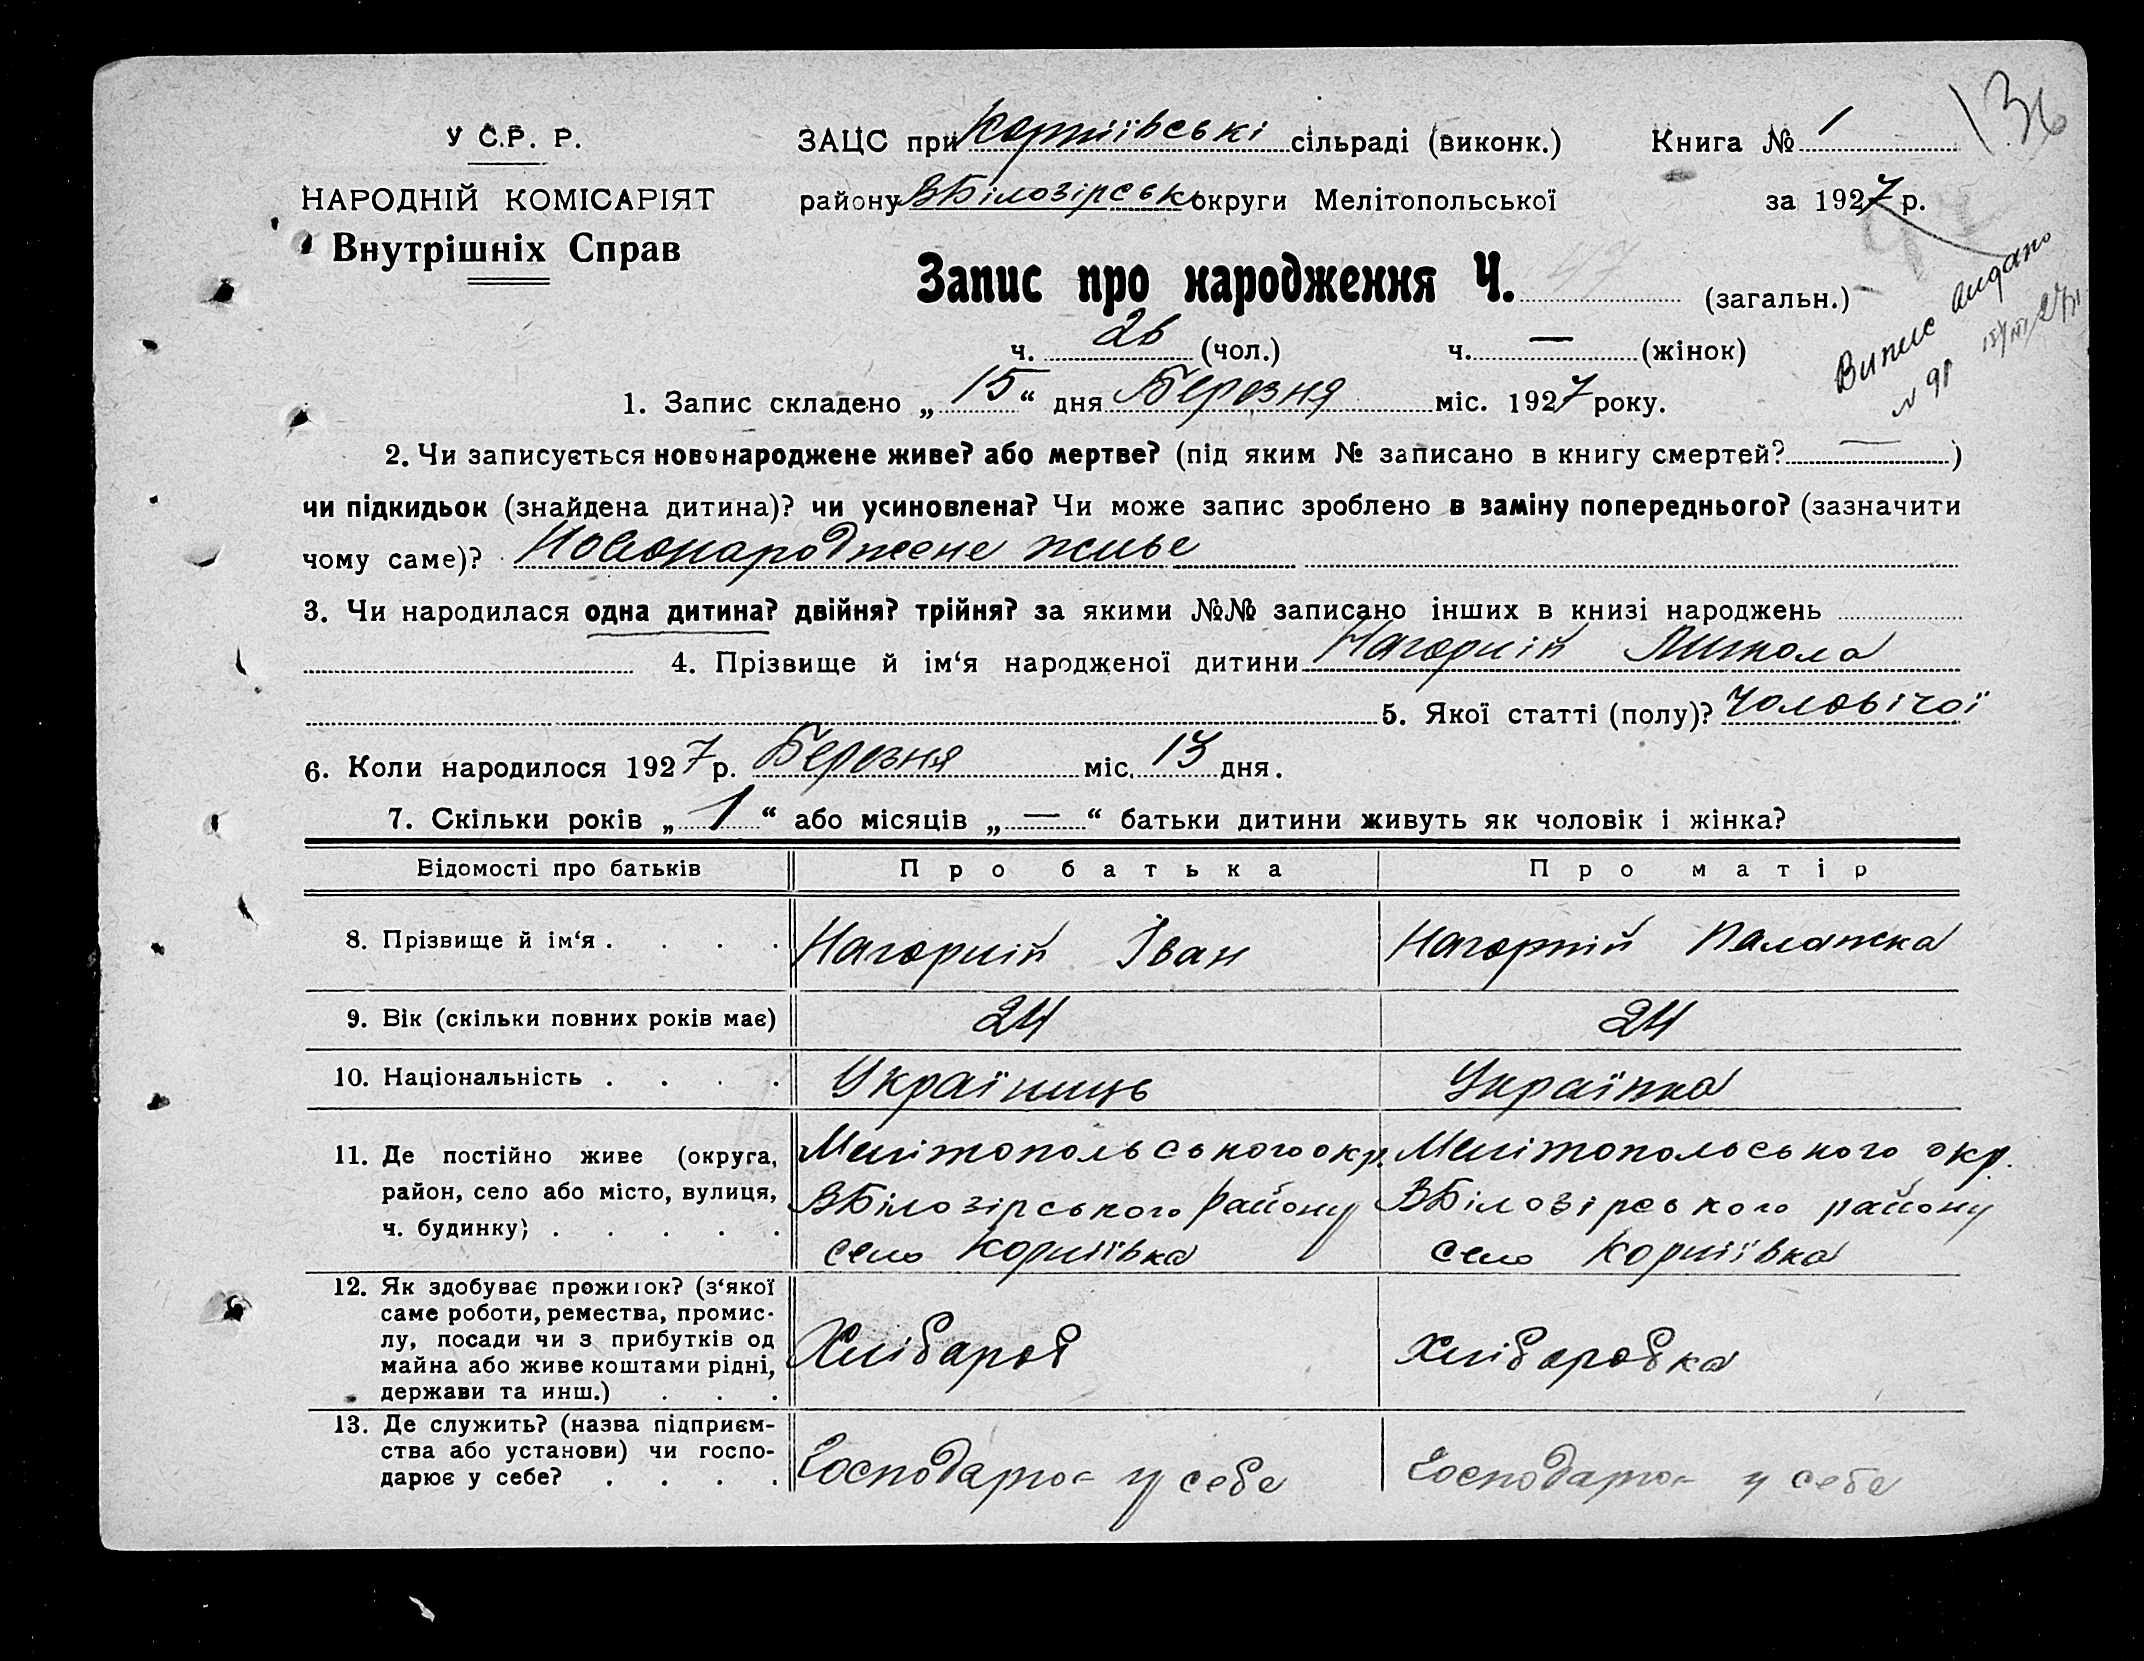 136
У С.Р. Р.
НАРОДНІЙ КОМІСАРІЯТ
Внутрішніх Справ
ЗАЦС при Корніївські сільраді (виконк.) Книга № 1
району ВБілозірськ округи Мелітопольської за 1927 р.
Запис про народження Ч. 47 (загальн.)
ч. 26 (чол.) ч. — (жінок)
Випис видано
N 91
1. Запис складено „15“ дня Березня міс. 1927 року.
2. Чи записується новонароджене живе? або мертве? (під яким № записано в книгу смертей? — )
чи підкидьок (знайдена дитина)? чи усиновлена? Чи може запис зроблено в заміну попереднього? (зазначити
чому саме)? Новонароджене живе
3. Чи народилася одна дитина? двійня? трійня? за якими №№ записано інших в книзі народжень
4. Прізвище й ім‘я народженої дитини Нагорній Микола
5. Якої статті (полу)? Чоловічої
6. Коли народилося 1927 р. Березня міс. 13 дня.
7. Скільки років „1“ або місяців „—“ батьки дитини живуть як чоловік і жінка?
Відомості про батьків Про батька Про матір
8. Прізвище й ім‘я . . . . Нагорній Іван Нагорній Палажка
9. Вік (скільки повних років має) 24 24
10. Національність . . . . Українць Українка
11. Де постійно живе (округа, Мелітопольського окр. Мелітопольського окр.
район, село або місто, вулиця, ВБілозірського району ВБілозірського району
ч. будинку) . . . . . село Корніївка село Корніївка
12. Як здобуває прожиток? (з‘якої
саме роботи, ремества, промис-
лу, посади чи з прибутків од
майна або живе коштами рідні,
держави та инш.) . . .
Хлібароб Хлібаробка
13. Де служить? (назва підприєм-
ства або установи) чи госпо-
дарює у себе? . . . .
Господарює у себе Господарює у себе